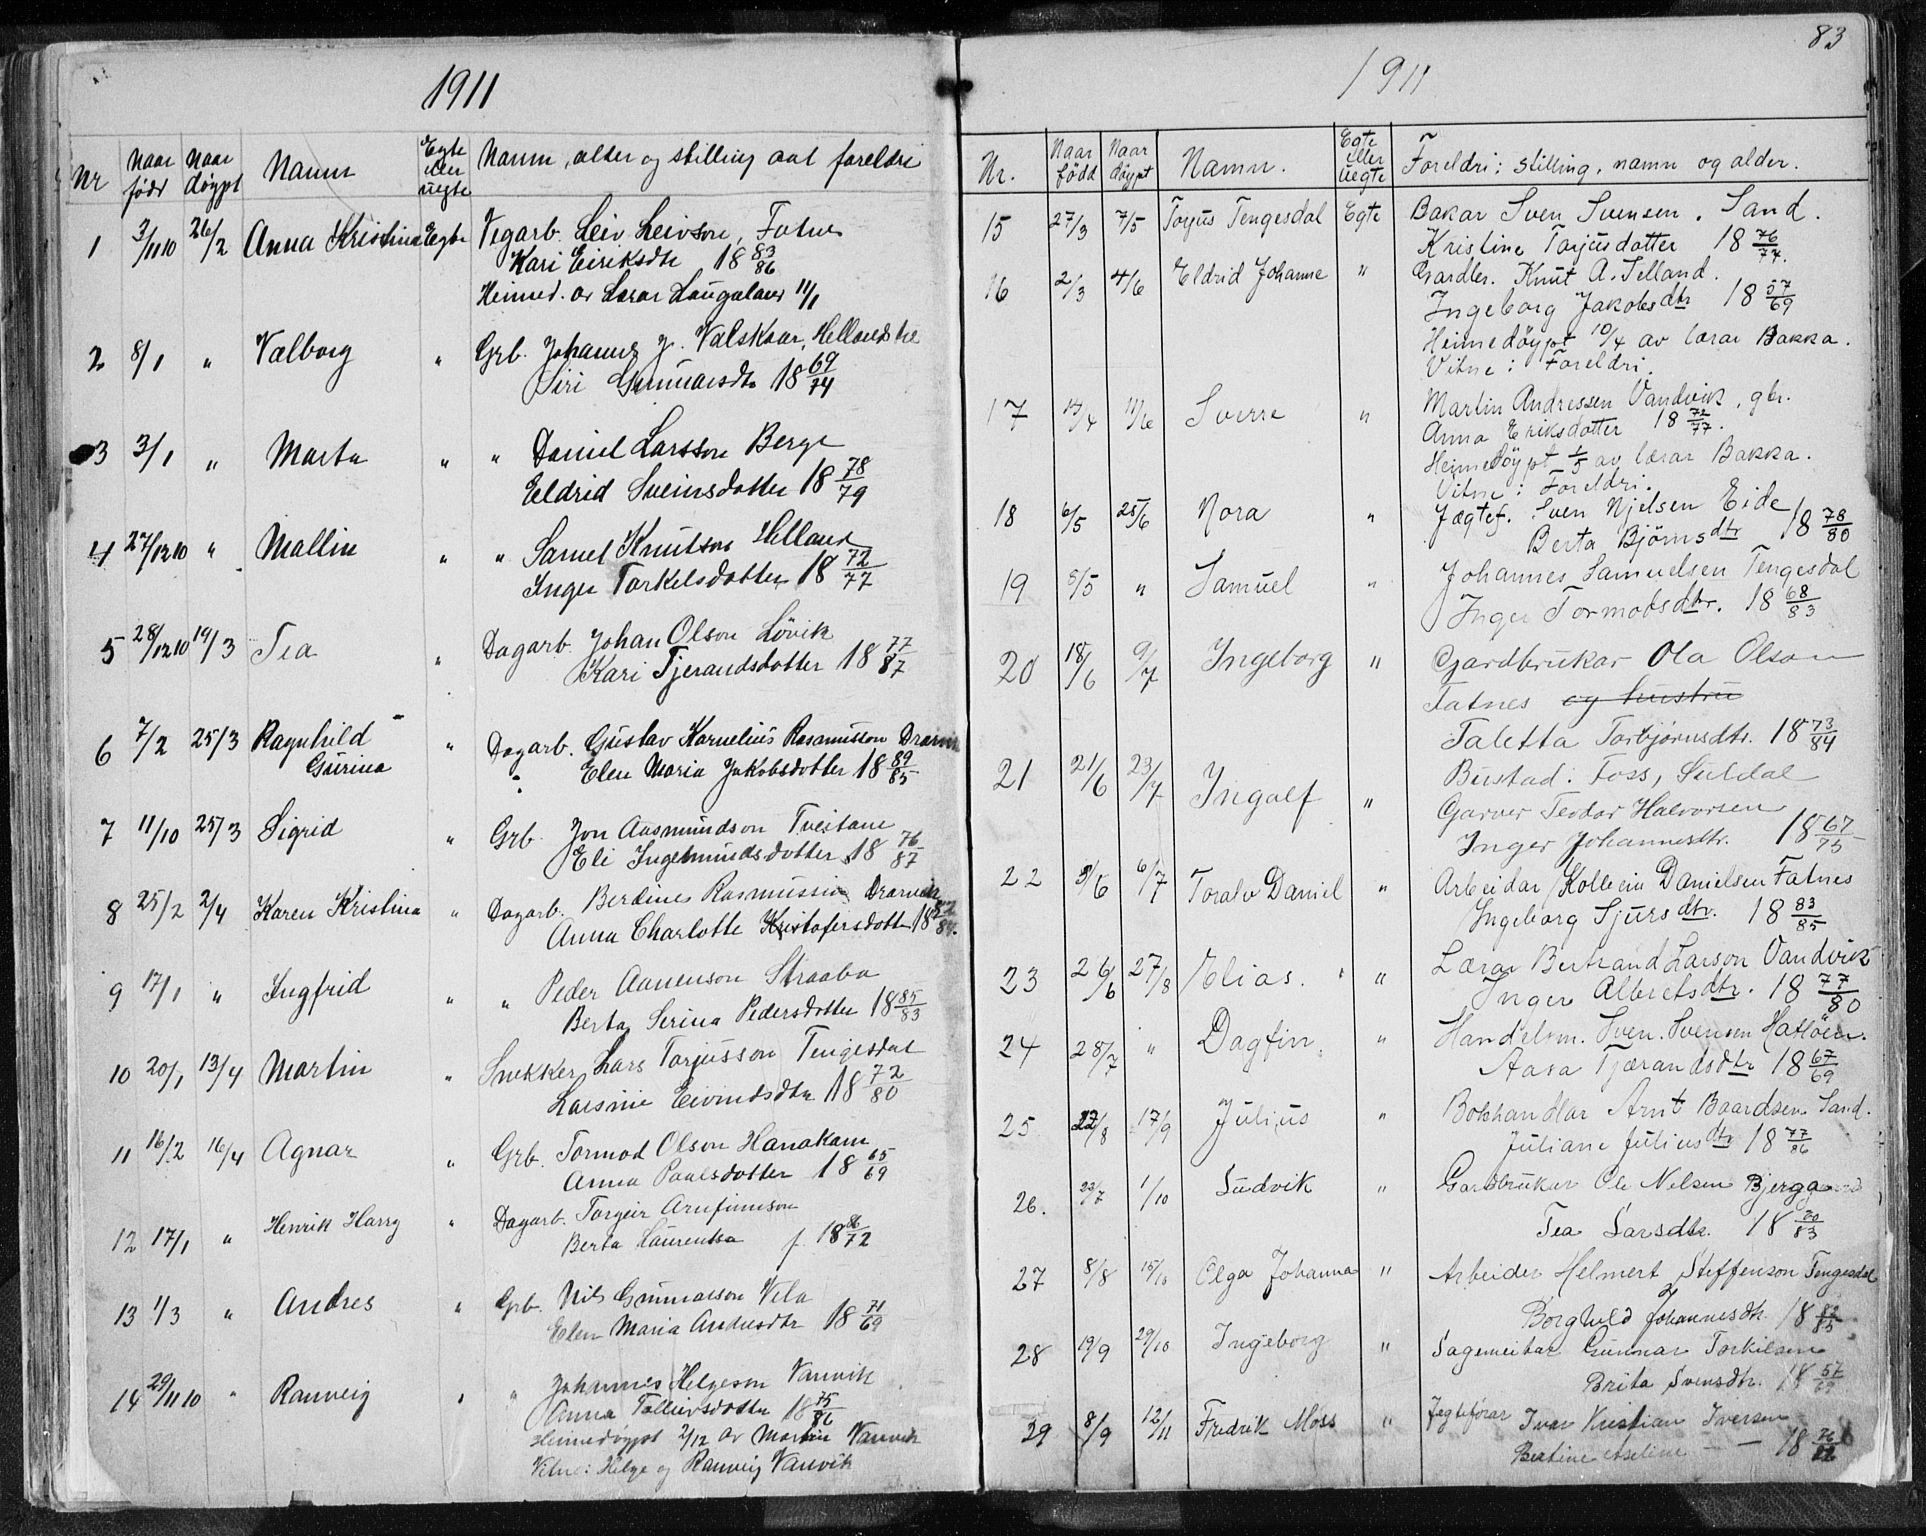 1911
Nr Naar født Naar døypt Namn Egte eller uegte Namn, alder og stilling aat foreldre
1 3/11 10 26/2 Anna Kristina Egte Vegarb. Leiv Leivson, Fatnes
Kari Eiriksdtr 18 83/86
Heimed. av Lærar Laugaland 11/1
2 8/1 " Valborg " Grb. Johannes J. Valskaar, Hellandstre
Siri Gunnarsdtr 18 69/74
3 3/1 " Marta " " Daniel Larsson Berge
Eldrid Sveinsdotter 18 78/79
4 27/12 10 " Mallin " " Samel Knutson Helland
Inger Torkelsdotter 18 72/77
5 28/12 10 19/3 Tea " Dagarb. Johan Olson Løvik
Kari Tjerandsdotter 18 77/87
6 7/2 25/3 Ragnhild " Dagarb. Gustav Kornelius Rasmusson Drarvik
Gurina " Elen Maria Jakobsdotter 18 89/85
7 11/10 25/3 Sigrid " Grb. Jon Aasmundson Tveitane
Eli Ingemundsdotter 18 76/87
8 25/2 2/4 Karen Kristina " Dagarb. Berdines Rasmussen Drarvik
Anna Charlotte Kristofersdotter 18
9 17/1 " Ingfrid " " Peder Aanenson Straabø
Berta Serina Pedersdotter 18 85/83
10 20/1 13/4 Martin " Snekker Lars Torjusson Tengesdal
Larsine Eivindsdtr 18 72/80
11 16/2 16/4 Agnar " Grb. Tormod Olson Hanakam
Anna Paalsdotter 18 65/69
12 17/1 " Henrik Harry " Dagarb. Torgeir Arnfinnson
Berta Laurentsa f. 18 86/72
13 1/3 " Andres " Grb. Nils Gunnarson Vela
Elen Maria Andresdtr 18 71/69
14 29/11 10 " Ranveig " " Johannes Helgeson Vanvik
Anna Tolleivsdotter 18 75/86
Heimedøypt 2/12 av Martin Vanvik
Vitne: Helge og Ranveig Vanvik
83
1911
Nr. Naar fødd Naar døypt Namn. Egte eller uegte Foreldri: stilling, namn og alder.
15 27/3 7/5 Torjus Tengesdal Egte Bakar Sven Svensen. Sand.
Kristine Torjusdotter 18 76/77.
16 2/3 4/6 Eldrid Johanne " Gardbr. Knut A. Selland.
Ingeborg Jakobsdtr 18 57/69
Heimedøypt 10/4 av lærar Bakka.
Vitne: Foreldri.
17 14/4 11/6 Sverre " Martin Andressen Vandvik, gbr.
Anna Eriksdotter 18 72/77.
Heimedøypt 1/5 av lærar Bakka.
Vitne: Foreldri.
18 6/5 25/6 Nora " Jægtef. Sven Njelsen Eide
Berta Bjørnsdtr 18 78/80
19 5/5 " Samuel " Johannes Samuelsen Tengesdal
Inger Tormodsdtr. 18 68/83
20 18/6 9/7 Ingeborg " Gardbrukar Ola Olson
Fatnes og hustru
Taletta Torbjørnsdtr. 18 73/84
21 21/6 23/7 Ingolf " Bustad: Foss, Suldal
Garver Teodor Halvorsen
Inger Johannesdtr. 18 67/75
22 3/6 6/7 Toralv Daniel " Arbeidar Kolbein Danielsen Fatnes
Ingeborg Sjursdtr. 18 83/85
23 26/6 27/8 Elias. " Lærar Bertrand Larson Vandvik
Inger Albretsdtr. 18 77/80
24 28/7 " Dagfin " Handelsm. Sven Svensen Hatløen.
Aasa Tjærandsdtr 18 67/69
25 27/8 17/9 Julius " Bokhandlar Arnt Baardsen Sand.
Juliane Juliusdtr 18 77/86
26. 22/7 1/10 Ludvik " Gardbrukar Ole Nelsen Bjerga
Tea Larsdtr. 18 80/83
27 8/8 15/10 Olga Johanna " Arbeider Helmert Steffenson Tengesdal
Borghild Johannesdtr. 18 82/85
28 19/9 29/10 Ingeborg " Sagmeistar Gunnar Torkilsen
Brita Svensdtr. 18 57/69
29 8/9 12/11 Fredrik Moss " Jægteførar Ivar Kristian Iversen
Bertine Aseline — — 18 76/82